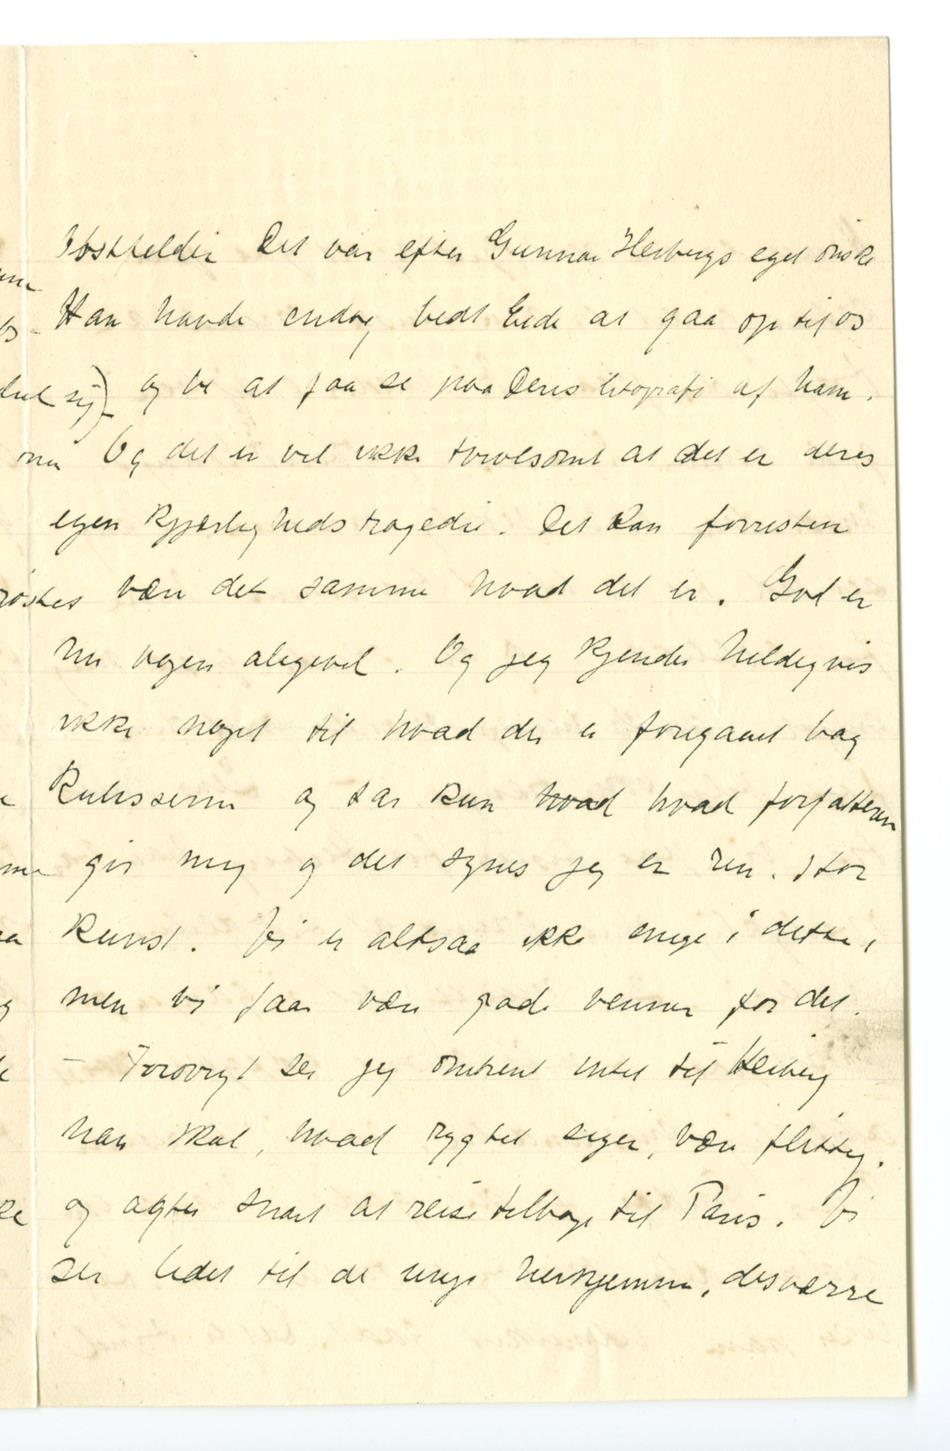 Obstfelder Det var efter Gunnar Heibergs eget ønske
Han havde endog bedt Eide at gaa op til os
og be at faa se paa Deres litografi af ham.
Og det er vel ikke tvivlsomt at det er deres
egen Kjærlighedstragedie. Det kan forresten
være det samme hvad det er. God er
nu bogen aligevel. Og jeg kjender heldigvis
ikke noget til hvad der er foregaaet bag
Kulisserne og tar kun hvad forfatteren
gir mig og det synes jeg er ren. stor
Kunst. Vi er altsaa ikke enige i dette,
men vi faar være gode venner for det.
– Forøvrigt ser jeg omtrent intet til Heiberg
han skal, hvad rygtet siger, være flittig.
og agter snart at reise tilbage til Paris. Vi
ser lidet til de unge herhjemme, desværre